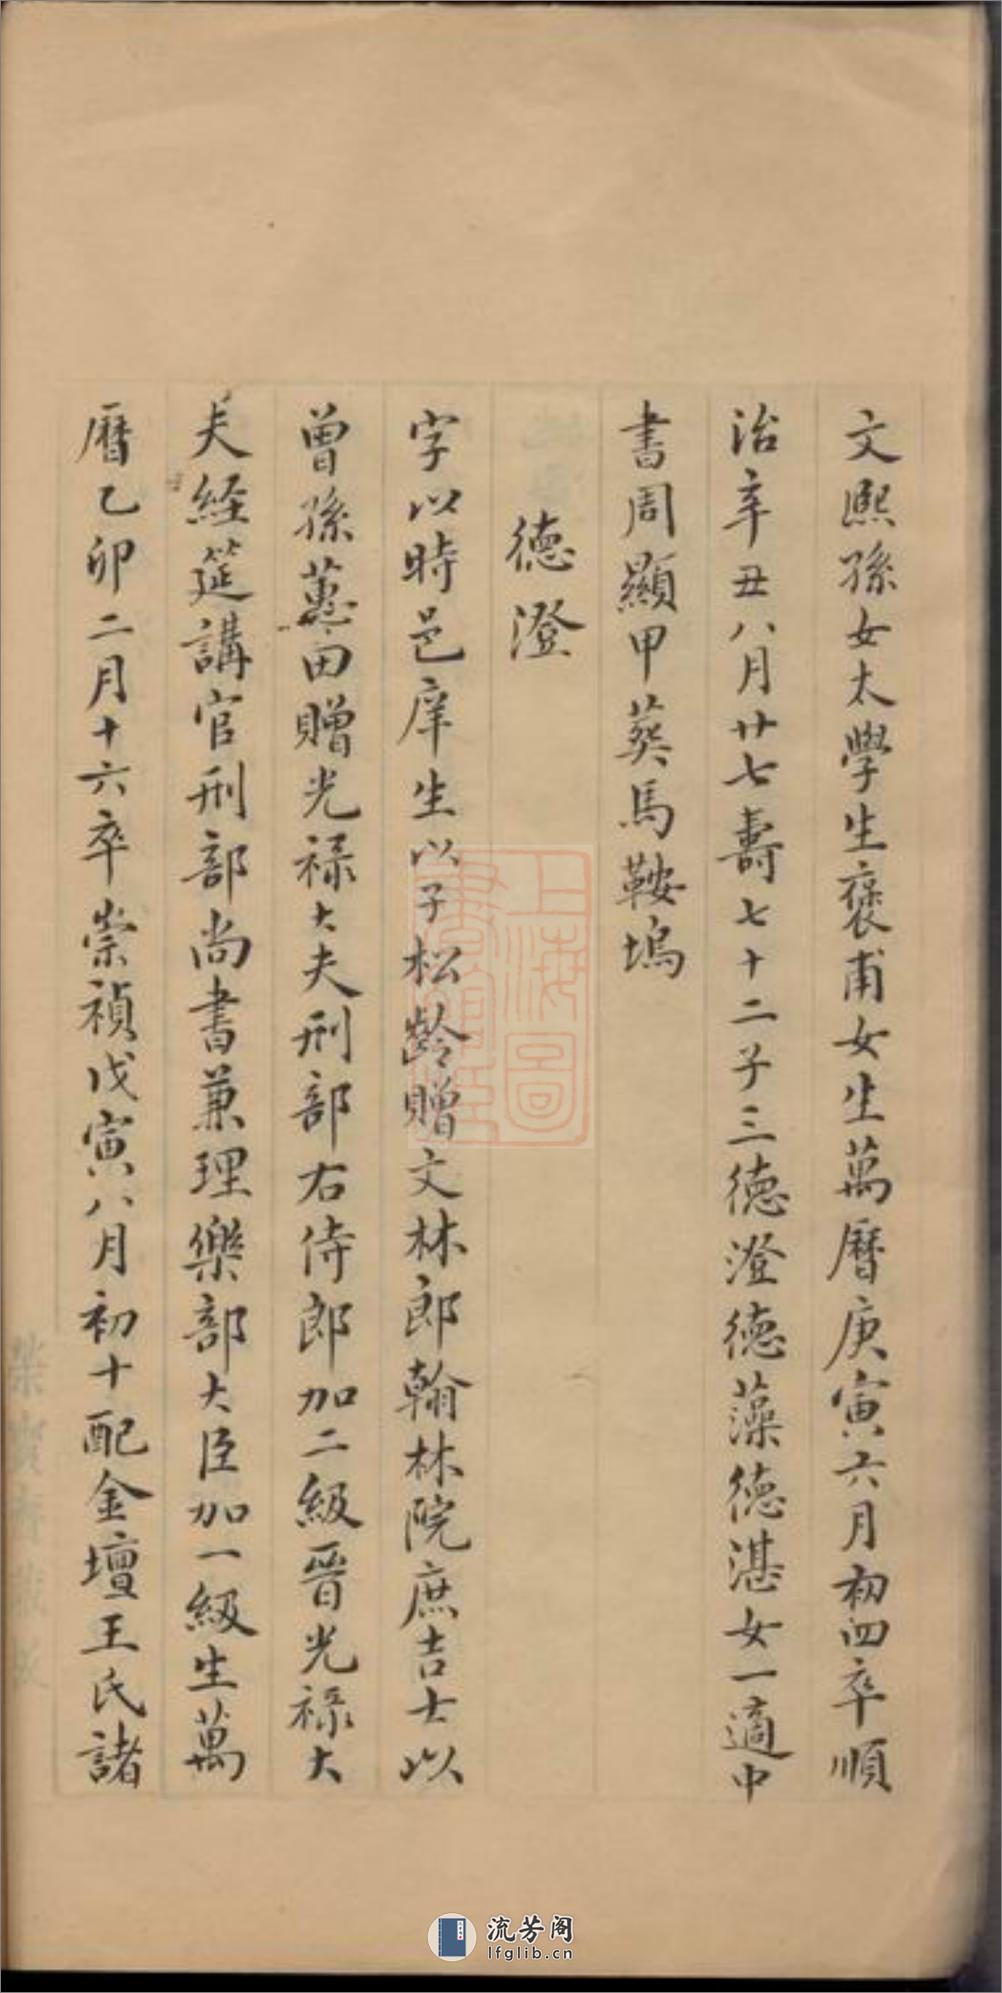 文熙孫女太學生褒甫女生萬曆庚寅六月初四卒順
治辛丑八月廿七壽七十二子三德澄德藻德湛女一適中
書周顯甲葵馬鞍塢
德澄
字以時邑庠生以子松齡贈文林郎翰林院庶吉士以
曾孫蕙田贈光祿大夫刑部右侍郎加二級晉光祿大
夫經筵講官刑部尚書兼理樂部大臣加一級生萬
曆乙卯二月十六卒崇禎戊寅八月初十配金壇王氏諸
上海圖書館藏
流芳阁
lfglib.cn